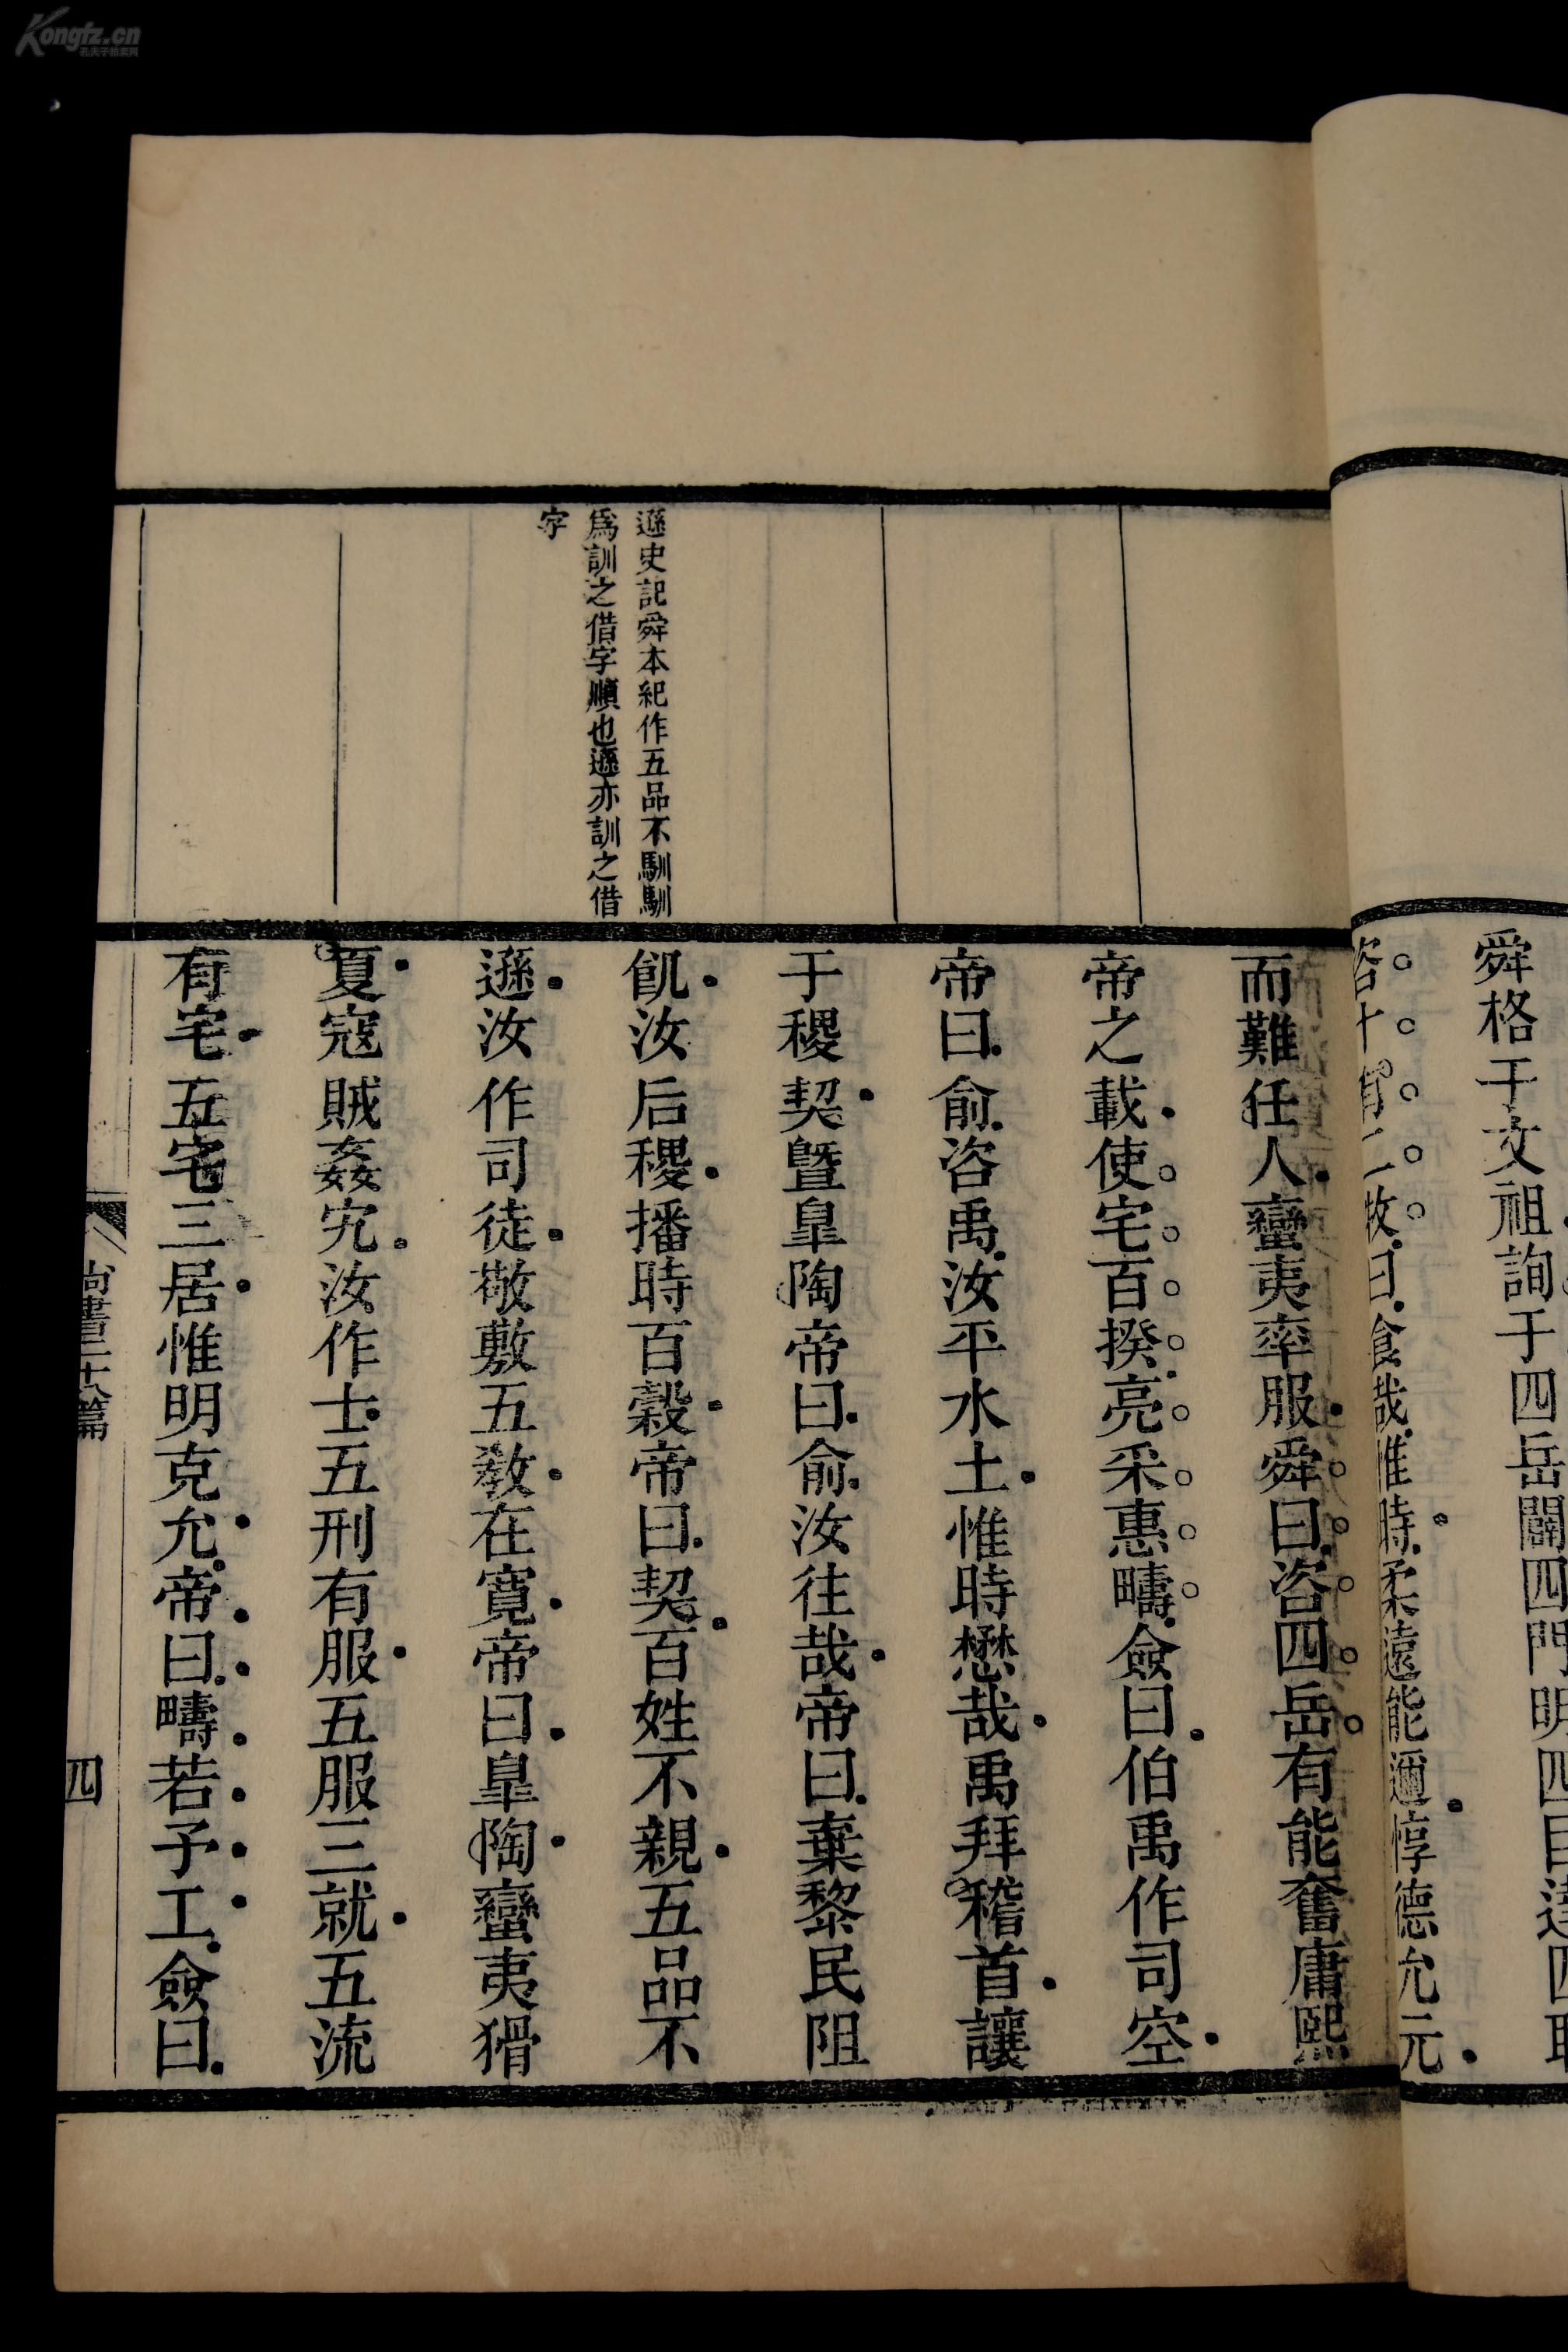 舜格于文祖詢于四岳闢四門明四目達四
咨十有二牧曰食哉惟時柔遠能邇惇德允元
而難任人蠻夷率服舜曰咨四岳有能奮庸熙
帝之載使宅百揆亮采惠疇僉曰伯禹作司空
帝曰俞咨禹汝平水土惟時懋哉禹拜稽首讓
于稷契暨皐陶帝曰俞汝往哉帝曰棄黎民阻
飢汝后稷播時百穀帝曰契百姓不親五品不
遜汝作司徒敬敷五敎在寬帝曰皐陶蠻夷猾
夏寇賊姦宄汝作士五刑有服五服三就五流
有宅五宅三居惟明克允帝曰疇若予工僉曰
遜史記舜本紀作五品不馴馴
爲訓之借字順也遜亦訓之借
字
尚書二十八篇
四
Kongfz.cn
孔夫子拍卖网